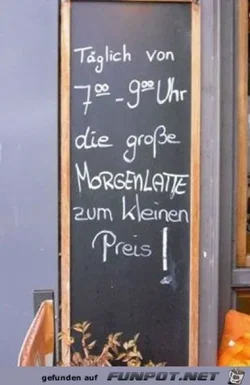 Täglich von
7⁰⁰ - 9⁰⁰ Uhr
die große
MORGENLATTE
zum kleinen
Preis!
gefunden auf FUNPOT.NET